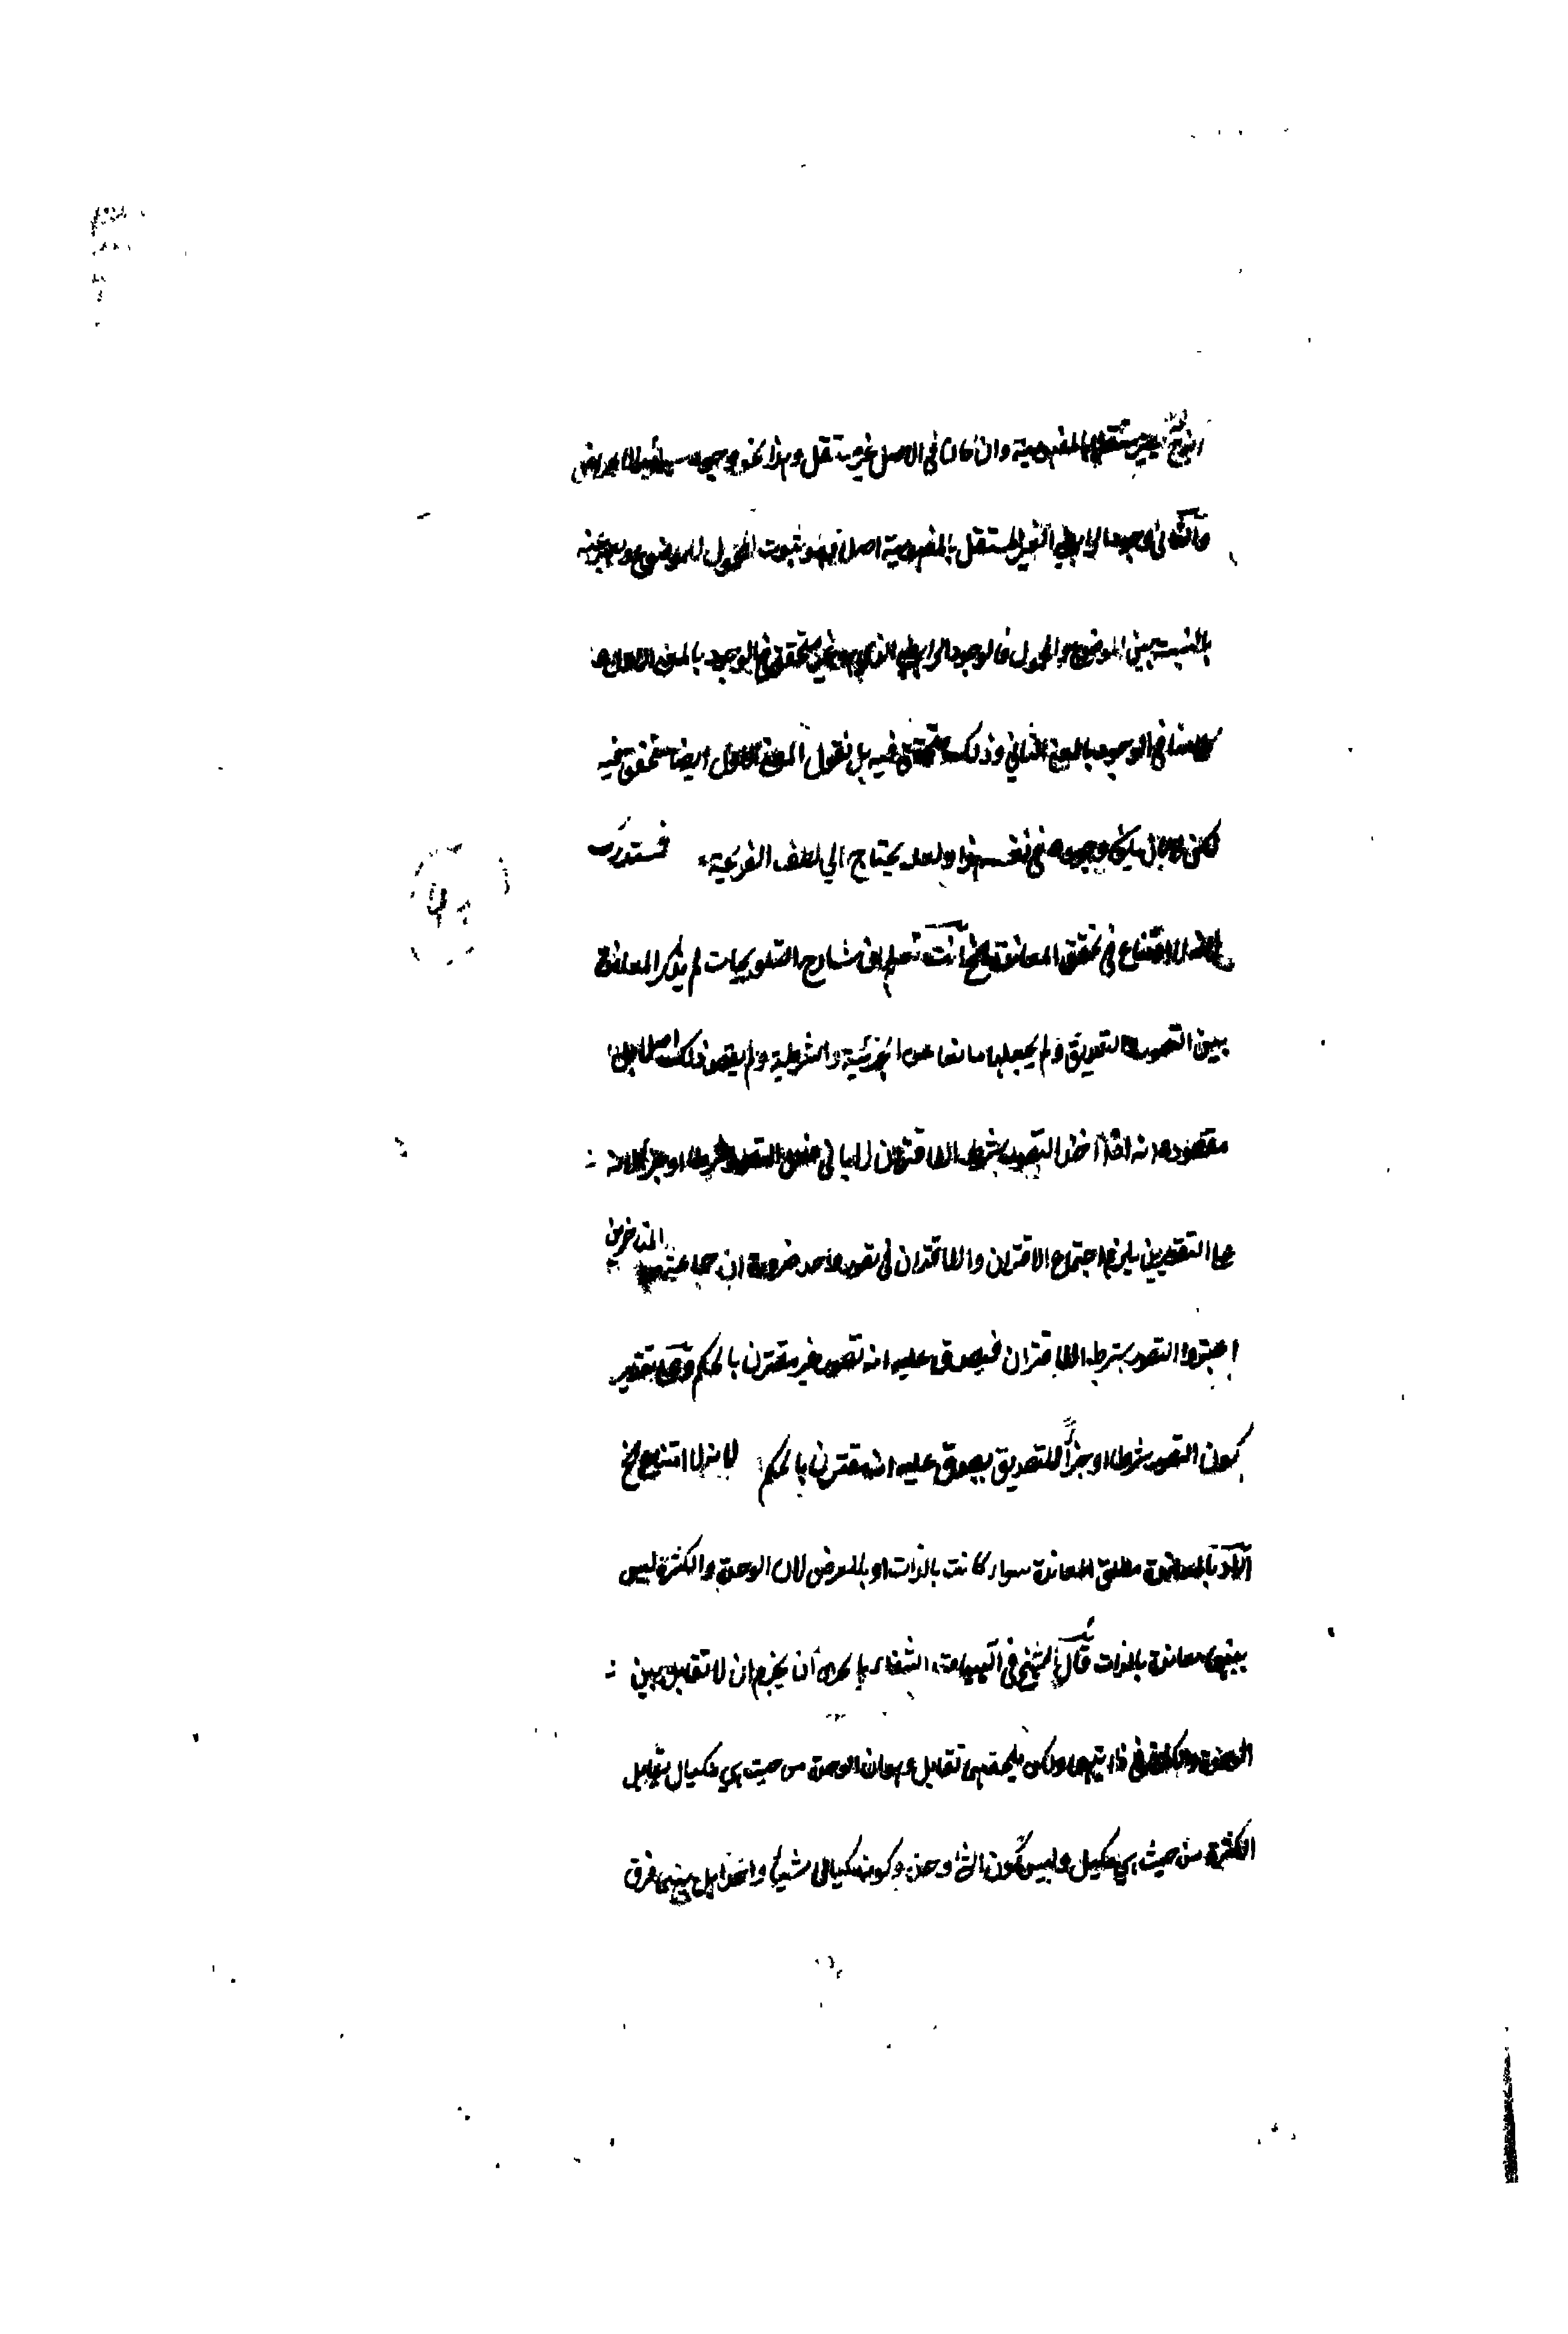 يصير مستقلا بالمفهومية وان كان في الاصل غير مستقل وهذا نحو وجود سائر الاعراض
والثاني وجود الرابطي الغير المستقل بالمفهومية اصلا فهو ثبوت المحمول للموضوع ويعبر عنه
بالنسبة بين الموضوع والمحمول فالوجود الرابطي الذي هو غير متحقق في الوجود بالمعنى الاول
كلامنا في الوجود بالمعنى الثاني وذلك متحقق فيه بل نقول المعنى الاول ايضا متحقق فيه
لكن وجوده في نفسه يحتاج الي لطف القريحة فستدرك
الامتناع في تحقق المعاندة ح انت تعلم ان شارح التلويحات لم يذكر المعاندة
بين التصور والتصديق ولم يجعلها مانعا عن الجزئية والشرطية ولم يقصد ذلك اصلا بل
مقصوده انه اذا اخذ التصور بشرط اللا اقتران شرطا او جزأ لانه
على التقديرين يلزم اجتماع الاقتران واللا اقتران في تصور واحد ضرورة ان جماعة المتاخرين
اعتبروا التصور بشرط اللا اقتران فيصدق عليه انه تصور غير مقترن بالحكم وعلى تقدير
كون التصور شرطا او جزأ للتصديق يصدق عليه انه مقترن بالحكم لانه لا امتناع ح
اراد بالمعاندة مطلق المعاندة سواء كانت بالذات او بالعرض لان الوحدة والكثرة ليس
بينهما معاندة بالذات قال الشيخ في الهيات الشفاء بالحرى أن يجزم ان لا تقابل بين
الوحدة والكثرة في ذاتيهما ولكن يلحقهما تقابل وهو ان الوحدة من حيث هي مكيال تقابل
الكثرة من حيث هي مكيل وليس كون الشئ وحدة وكونه مكيالا شيأ واحدا بل بينهما فرق